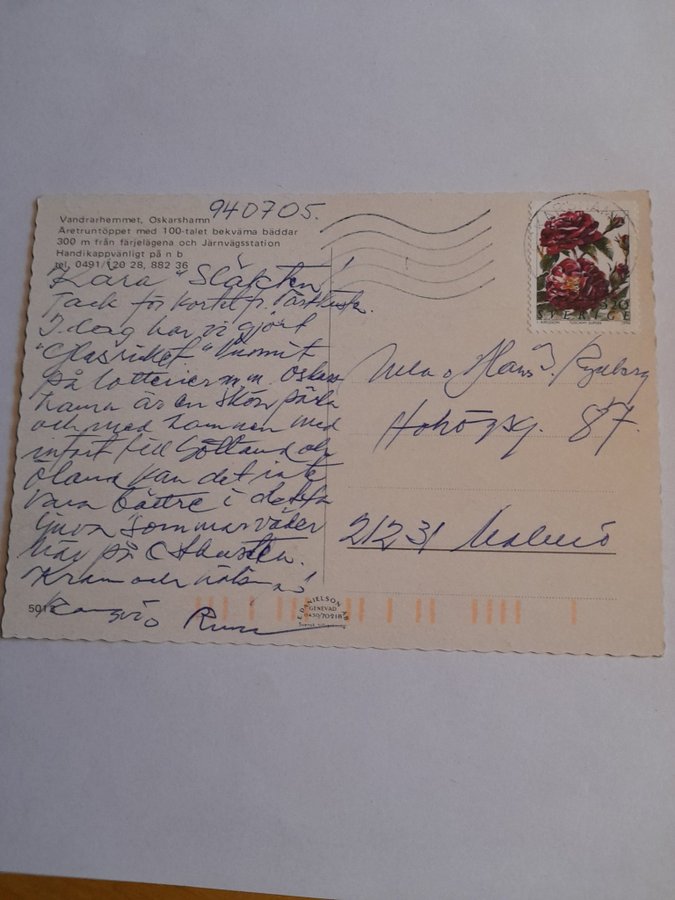 940705.
Vandrarhemmet, Oskarshamn
Åretruntöppet med 100-talet bekväma bäddar
300 m från färjelägena och Järnvägsstation
Handikappvänligt på n b
tel. 0491/120 28, 882 36
Kära "Släkten"!
Tack för kortet fr. Västkusten.
I dag har vi gjort
"Glasriket" vunnit
på lotterier m.m. Oskars-
hamn är en skön pärla
och med hamnen med
infart till Gottland och
Öland kan det inte
vara bättre i detta
ljuva sommarväder
här på Ostkusten.
Kram och hälsn
Rune
SVERIGE
o Hans
87.
21231 Malmö
5012
E. DANIELSON AB
GENEVAD
0430/70218